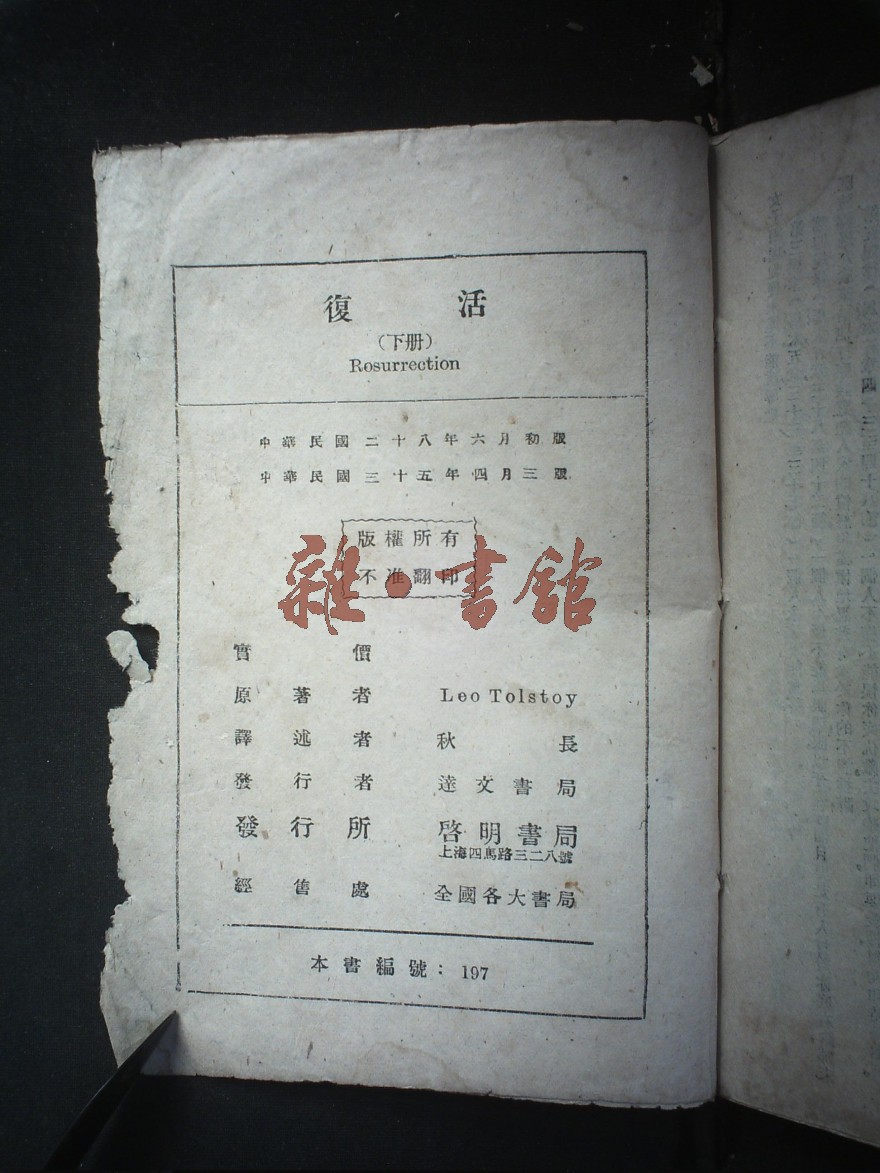 復活
(下册)
Rosurrection
中華民國二十八年六月初版
中華民國三十五年四月三版
版權所有
不准翻印
雜·書館
實價
原著者 Leo Tolstoy
譯述者 秋長
發行者 達文書局
發行所 啓明書局
上海四馬路三二八號
經售處 全國各大書局
本書編號：197